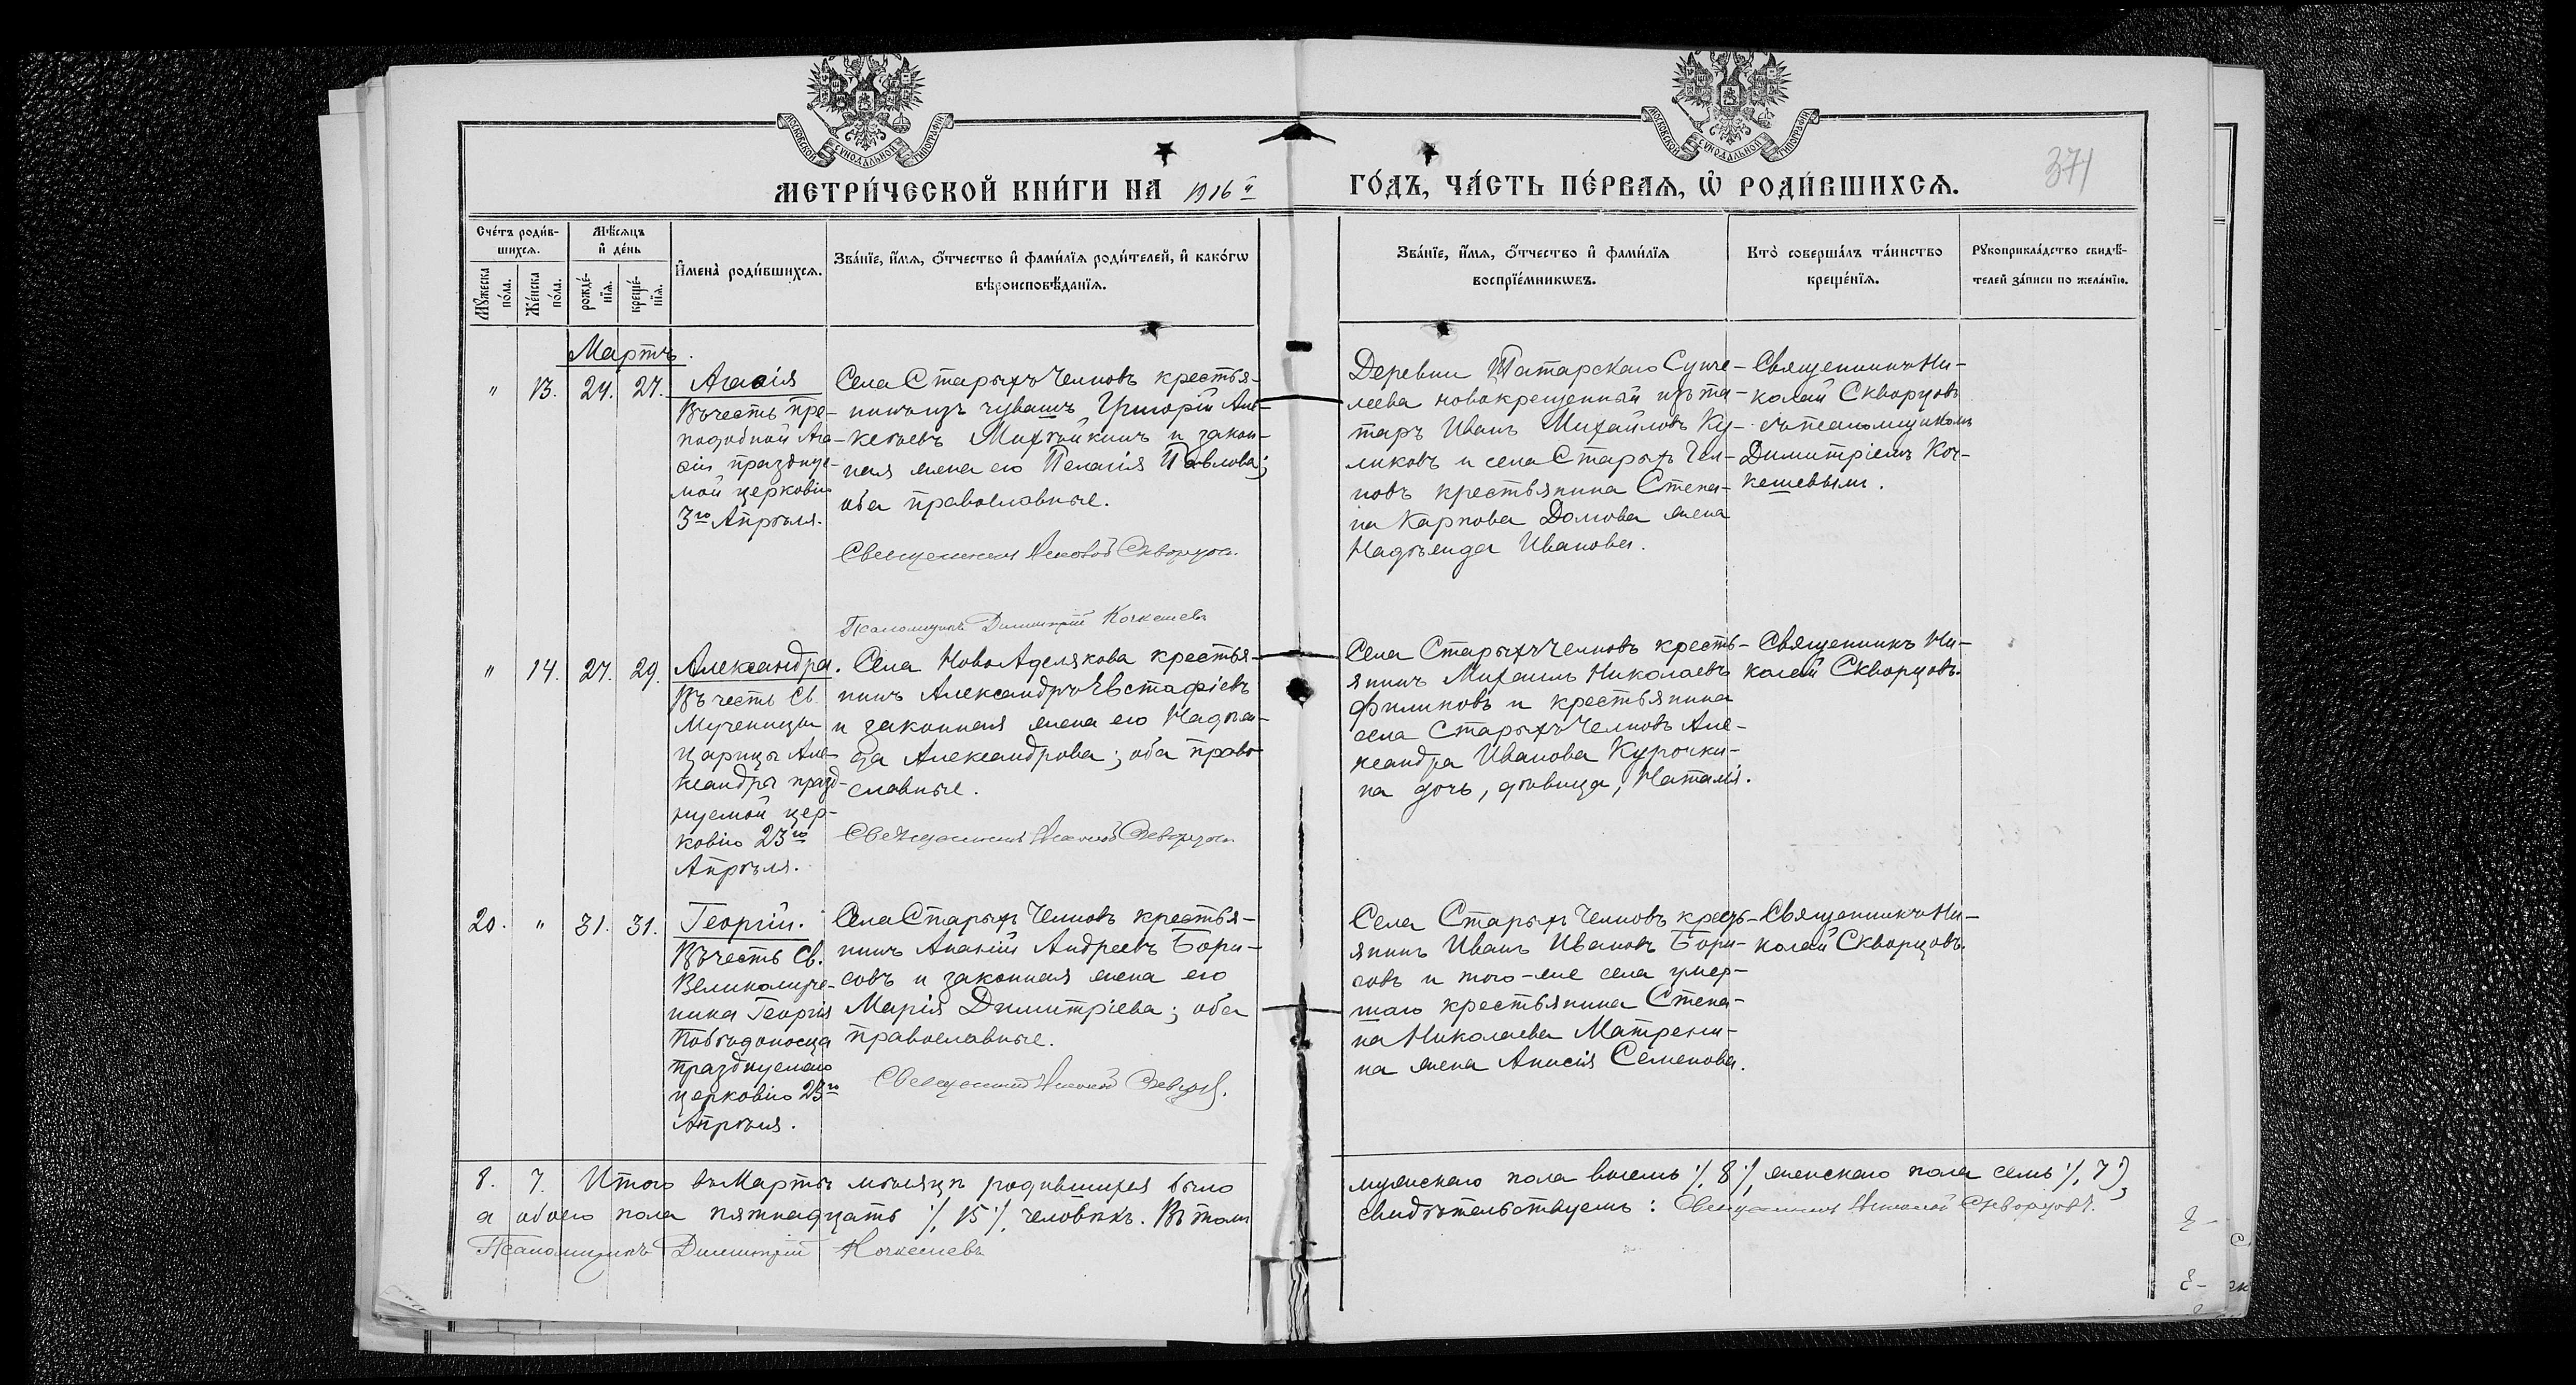 МОСКОВСКОЙ СѴНОДАЛЬНОЙ ТИПОГРАФІИ
МОСКОВСКОЙ СѴНОДАЛЬНОЙ ТИПОГРАФІИ
МЕТРИ́ЧЕСКОЙ КНИ́ГИ НА 1916й ГО́ДЪ, ЧА́СТЬ ПЕ́РВАѦ, Ѡ РОДИ́ВШИХСѦ.
371
Сче́тъ роди́в-
шихсѧ.
Мꙋжеска
по́ла.
Же́нска
по́ла.
Мѣ́сѧцъ
и҆ де́нь
рожде́-
нїѧ.
креще́-
нїѧ.
И҆мена̀ роди́вшихсѧ.
Зва́нїе, и҆́мѧ, ѻ҆́тчество и҆ фами́лїѧ роди́телей, и҆ како́гѡ
вѣроисповѣ́данїѧ.
Зва́нїе, и҆́мѧ, ѻ҆́тчество и҆ фами́лїѧ
воспрїе́мникѡвъ.
Кто̀ соверша́лъ та́инство
креще́нїѧ.
Рꙋкоприкла́дство свидѣ́-
телей за́писи по жела́нїю.
Мартъ.
" 13. 24. 27. Агаѳія
Въ честь пре-
подобной Ага-
ѳіи празднуе-
мой церковію
3го Апрѣля.
Села Старыхъ Челновъ крестья-
нинъ изъ чувашъ Григорій Але-
ксѣевъ и закон-
ная жена его Пелагія Павлова;
оба православные.
Священникъ Николай Скворцовъ.
Псаломщикъ Димитрій Кочкешевъ
Деревни Татарскаго Сунче-
леева новокрещенный изъ та-
таръ Иванъ Михайловъ Ку-
ликовъ и села Старыхъ Чел-
новъ крестьянина Степа-
на Карпова Домова жена
Надѣжда Иванова.
Священникъ Ни-
колай Скворцовъ
съ псаломщикомъ
Димитріемъ Коч-
кешевымъ.
" 14. 27. 29. Александра.
Въ честь Св.
Мученицы
Царицы Але-
ксандры празд-
нуемой цер-
ковію 23го
Апрѣля.
Села Ново Аделякова крестья-
нинъ Александръ Евстафіевъ
и законная жена его Надѣж-
да Александрова; оба право-
славные.
Священникъ Николай Скворцовъ
Села Старыхъ Челновъ кресть-
янинъ Михаилъ Николаевъ
Филиповъ и крестьянина
села Старыхъ Челновъ Але-
ксандра Иванова Курочки-
на дочь, дѣвица, Наталія.
Священникъ Ни-
колай Скворцовъ.
20. " 31. 31. Георгій.
Въ честь Св.
Великомуче-
ника Георгія
Побѣдоносца
празднуемаго
церковію 23го
Апрѣля.
Села Старыхъ Челновъ крестья-
нинъ Ананій Андреевъ Бори-
совъ и законная жена его
Марія Димитріева; оба
православные.
Священникъ Николай Скворцовъ.
Села Старыхъ Челновъ кресть-
янинъ Иванъ Ивановъ Бори-
совъ и того-же села умер-
шаго крестьянина Степа-
на Николаева Матрени-
на жена Анисія Семенова.
Священникъ Ни-
колай Скворцовъ.
8. 7. Итого въ Мартѣ мѣсяцѣ родившихся было мужескаго пола восемь /.8./, женскаго пола семь /.7./,
а обоего пола пятнадцать /.15./ человѣкъ. Въ томъ свидѣтельствуемъ: Священникъ Николай Скворцовъ.
Псаломщикъ Димитрій Кочкешевъ